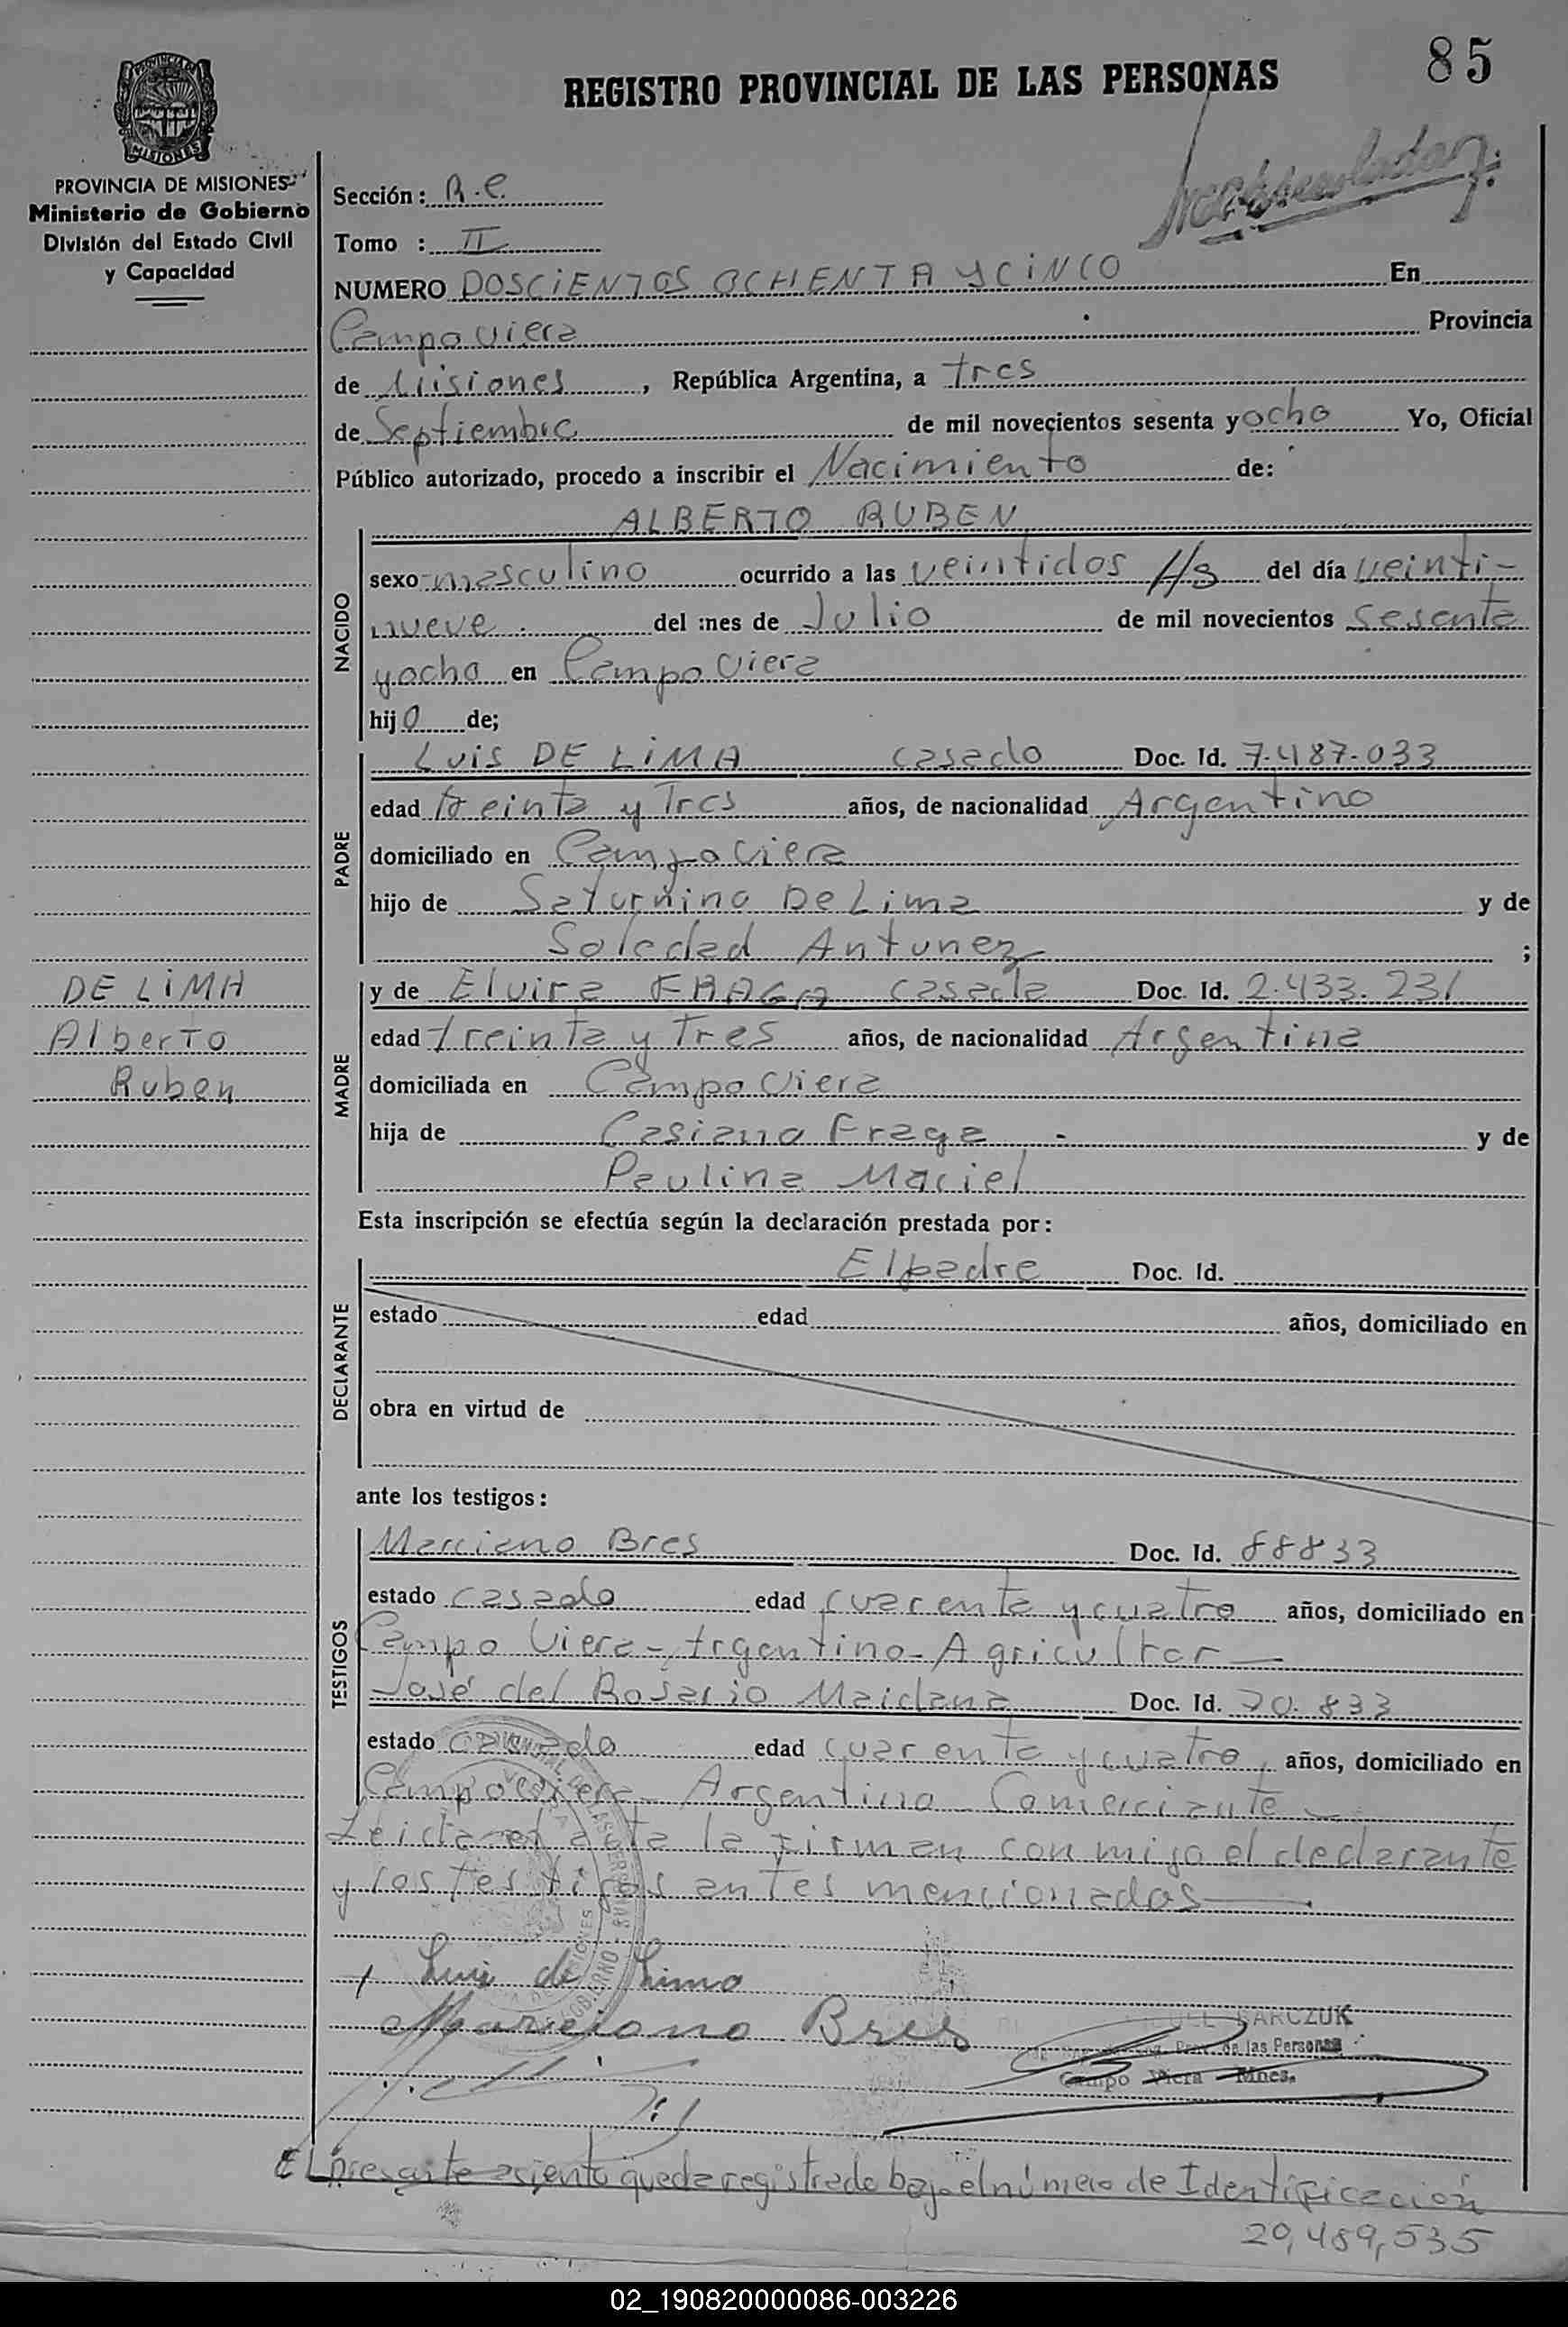 85
REGISTRO PROVINCIAL DE LAS PERSONAS
MISIONES
PROVINCIA DE MISIONES
Ministerio de Gobierno
División del Estado Civil
y Capacidad
Sección: R.C
Tomo : II
NUMERO DOSCIENTOS OCHENTA y CINCO En
Campo Viera Provincia
de Misiones, República Argentina, a tres
de Septiembre de mil novecientos sesenta y ocho Yo, Oficial
Público autorizado, procedo a inscribir el Nacimiento de:
ALBERTO RUBEN
NACIDO
sexo masculino ocurrido a las veintidos Hs del día veinti-
nueve del mes de Julio de mil novecientos sesenta
y ocho en Campo Viera
hijo de;
PADRE
LUIS DE LIMA casado Doc. Id. 7.487.033
edad treinta y Tres años, de nacionalidad Argentino
domiciliado en Campo Viera
hijo de Saturnino De Lima y de
Soledad Antunez ;
DE LIMA
Alberto
Ruben
MADRE
y de Elvira FRAGA casada Doc. Id. 2.433.231
edad treinta y Tres años, de nacionalidad Argentina
domiciliada en Campo Viera
hija de Casiano Fraga - y de
Paulina Maciel
Esta inscripción se efectúa según la declaración prestada por:
DECLARANTE
El padre Doc. Id.
estado edad años, domiciliado en
obra en virtud de
ante los testigos:
TESTIGOS
Marciano Bres Doc. Id. 88833
estado casado edad cuarenta y cuatro años, domiciliado en
Campo Viera - Argentino - Agricultor
José del Rosario Maidana Doc. Id. 70.833
estado casado edad cuarenta y cuatro años, domiciliado en
Campo Viera - Argentino - Comerciante
Leida el acta la firman con migo el declarante
y los testigos antes mencionados
Luis de Lima
Marciano Bres
BARCZUK
de las Personas
Campo Viera - Mnes.
El presente asiento queda registrado bajo el número de Identificación
20,489,535
02_190820000086-003226